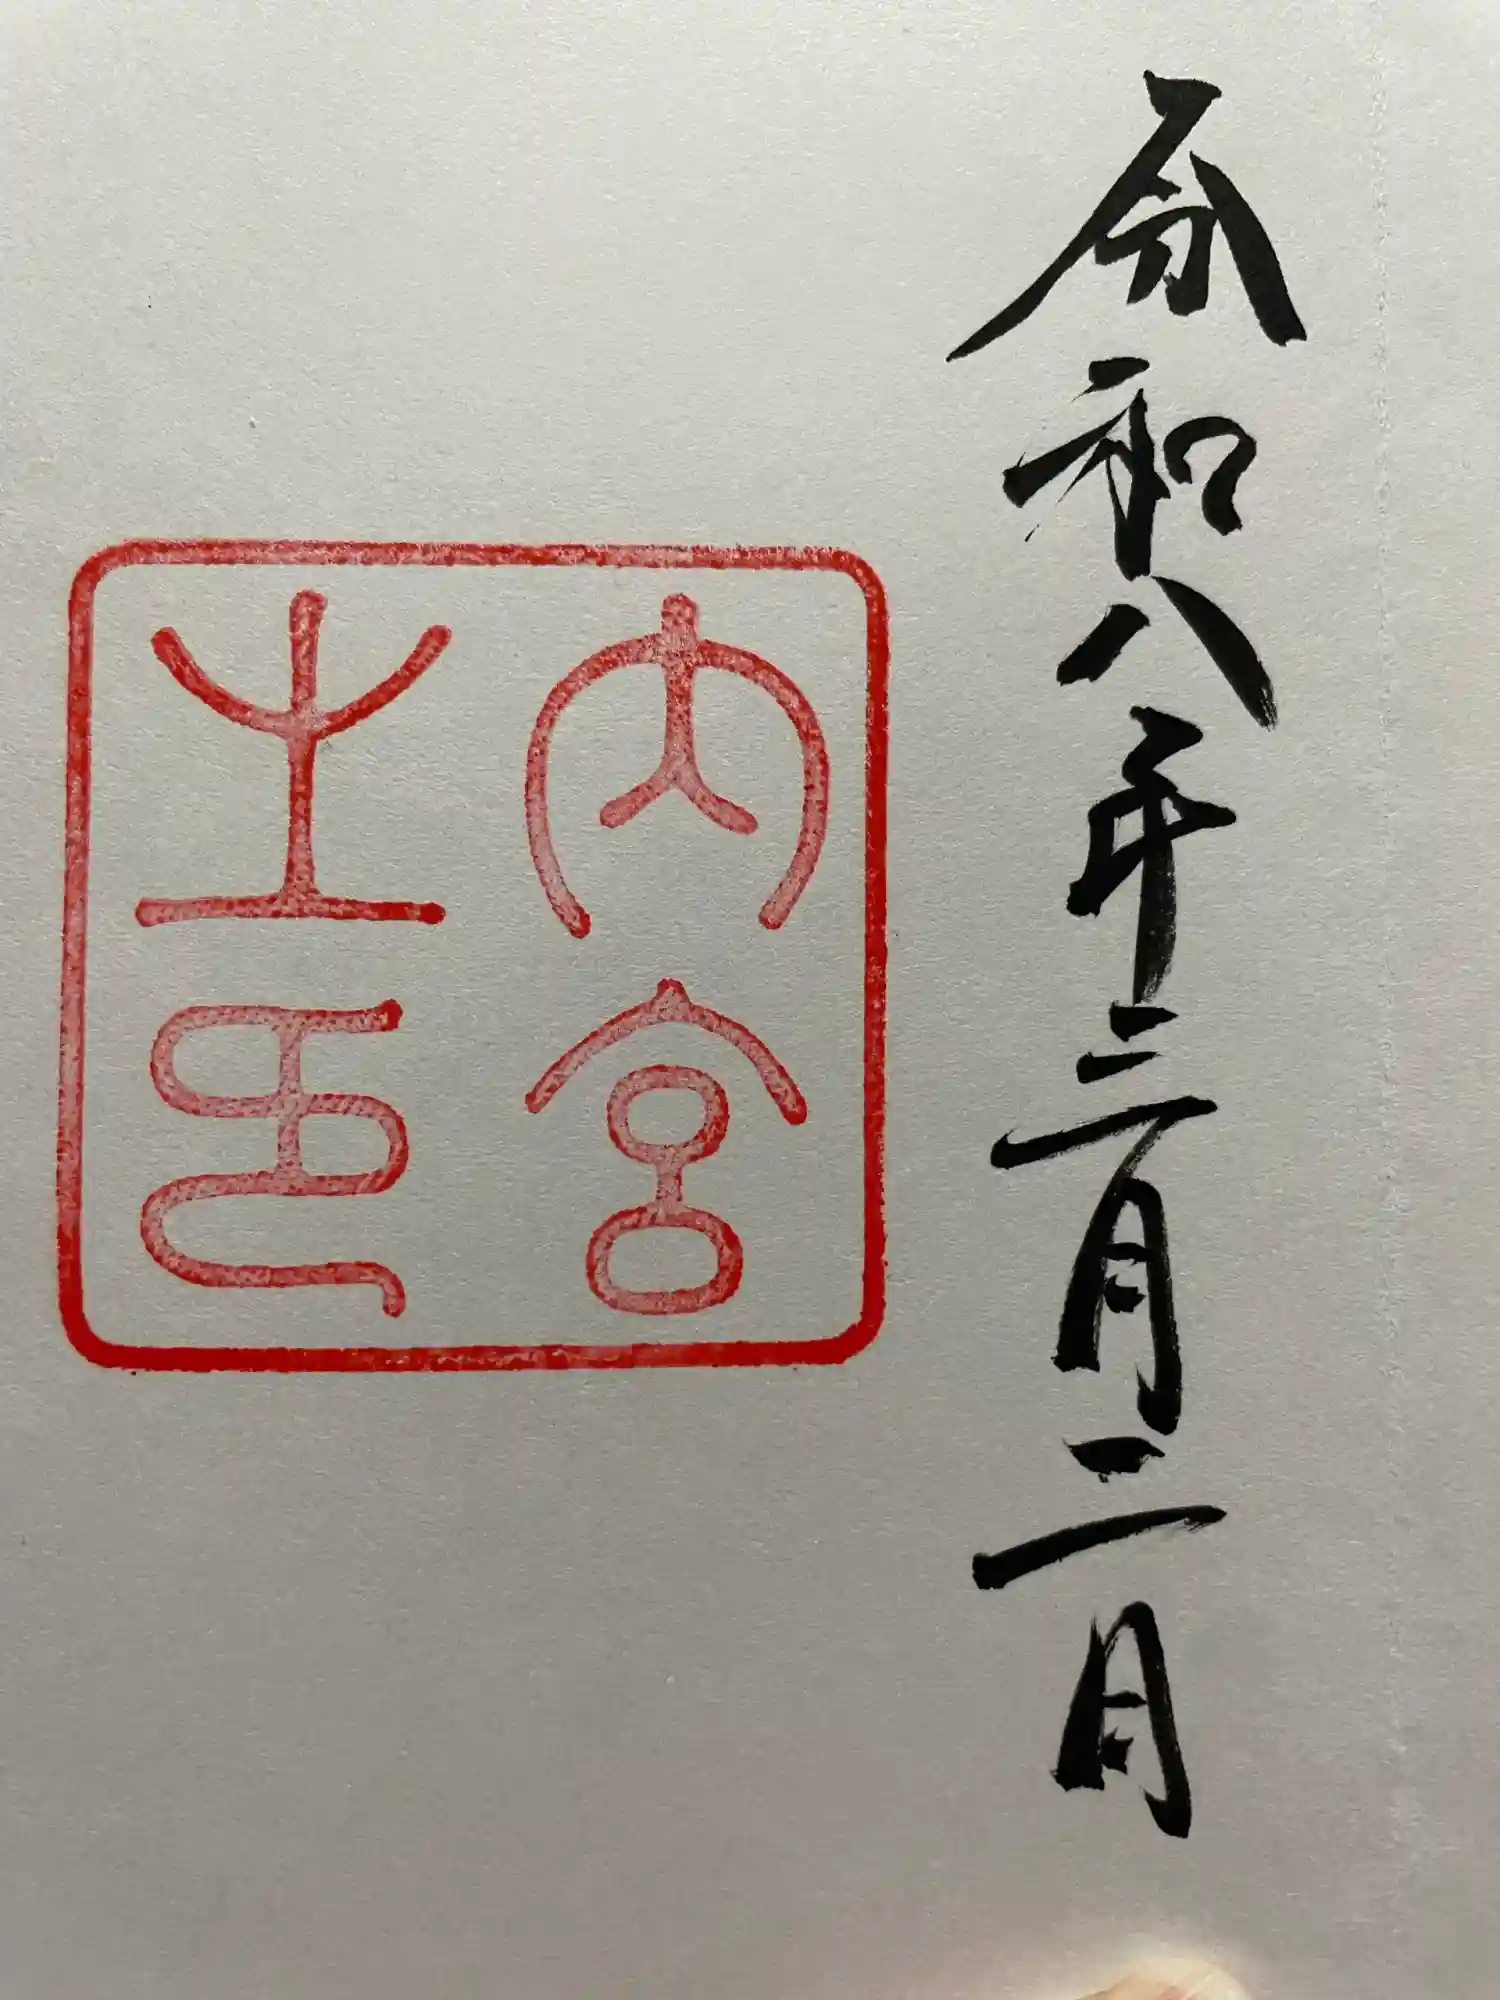 令和八年三月二日
内宮
之印